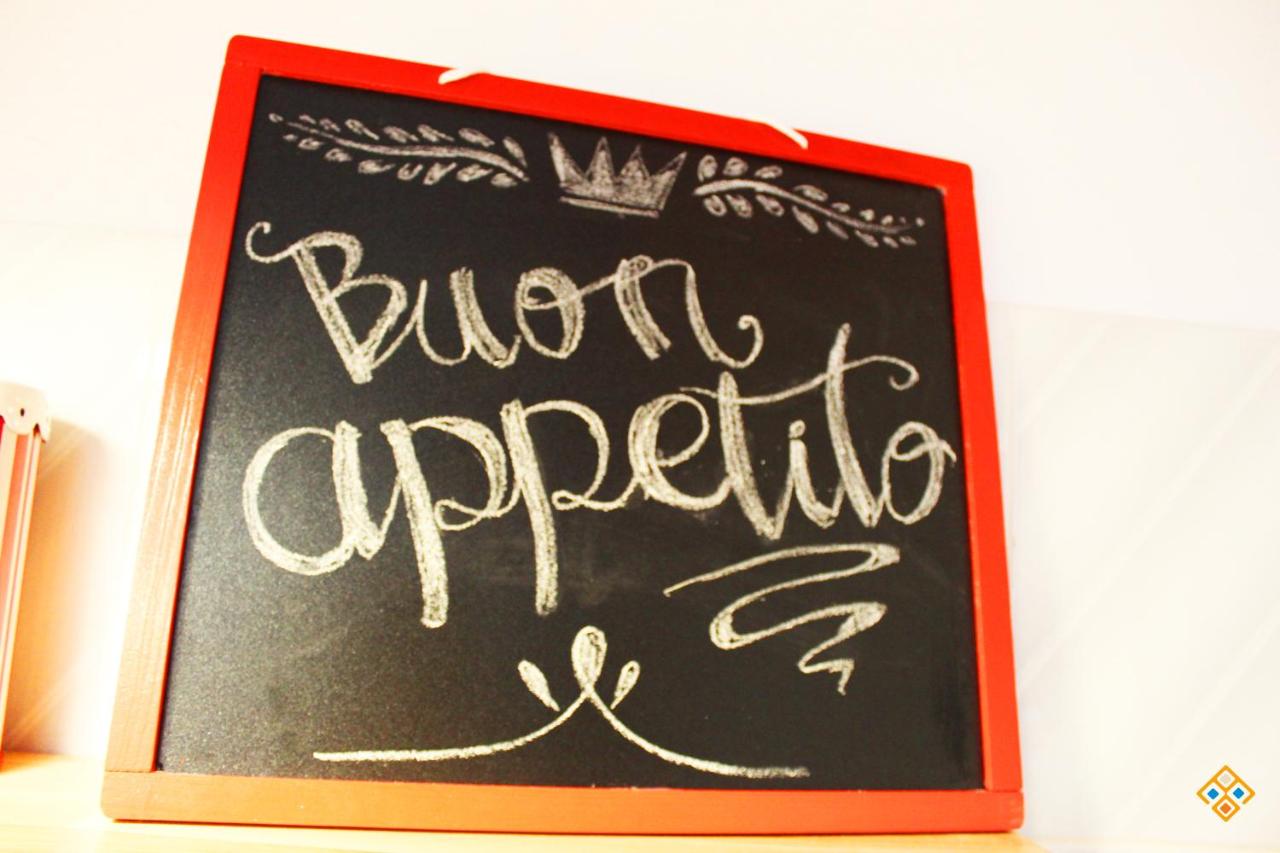 Buon
appetito